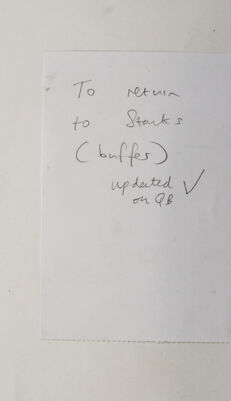 To return
to Stacks
(buffer)
updated ✓
on QB